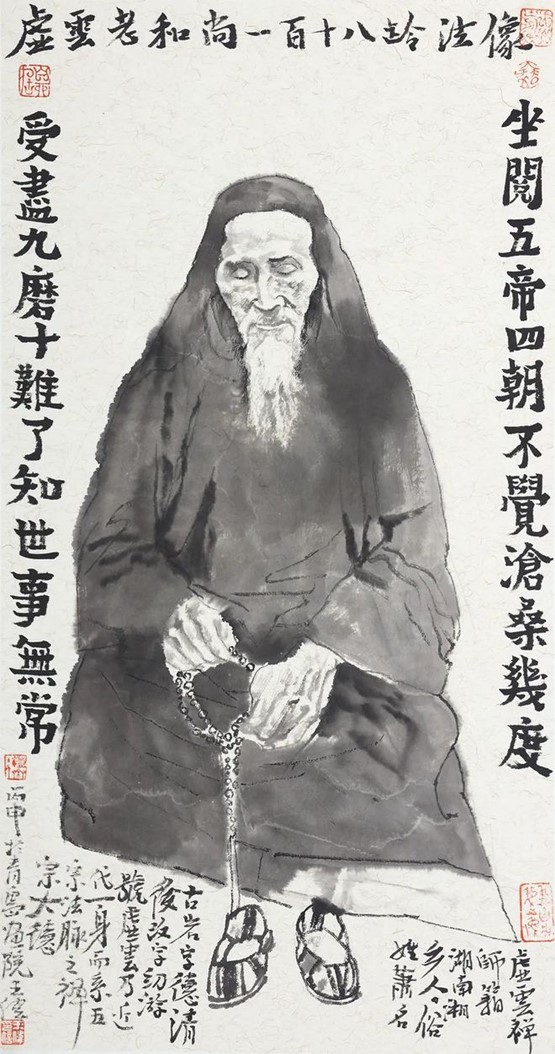 虚雲老和尚一百十八龄法像
坐閱五帝四朝不覺滄桑幾度
受盡九磨十難了知世事無常
虚雲禅
師籍
湖南湘
乡人俗
姓蕭名
古岩字德清
後改字幼游
號虚雲乃近
代一身而系五
宗法脉之禅
宗大德
丙申於青墨画院王